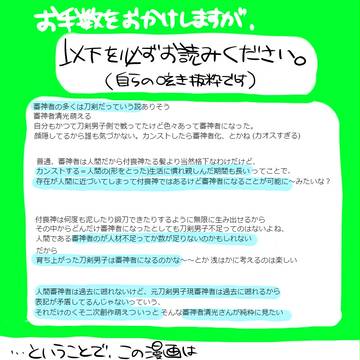 お手数をおかけしますが、
以下を必ずお読みください。
(自らの呟き抜粋です)
審神者の多くは刀剣だっていう説ありそう
審神者清光萌える
自分もかつて刀剣男子側で戦ってたけど色々あって審神者になった。
顔隠してるから誰も気づかない。カンストしたら審神者化、とかね (カオスすぎる)
普通、審神者は人間だから付喪神たる髪より当然格下なわけだけど、
カンストする＝人間の(形をとった)生活に慣れ親しんだ期間も長いってことで、
存在が人間に近づいてしまって付喪神ではあるけど審神者になることが可能に〜みたいな？
付喪神は何度も泥したり鍛刀できたりするように無限に生み出せるから
その中からどんだけ審神者になったとしても刀剣男子不足ってのはないよね、
人間である審神者のが人材不足ってか数が足りないのかもしれない
だから
育ち上がった刀剣男子は審神者になるのかな〜〜とか 浅はかに考えるのは楽しい
人間審神者は過去に遡れないけど、元刀剣男子現審神者は過去に遡れるから
表記が矛盾してるんじゃないっていう、
それだけのくそ二次創作萌えついっと そんな審神者清光さんが純粋に見たい
…ということで、この漫画は